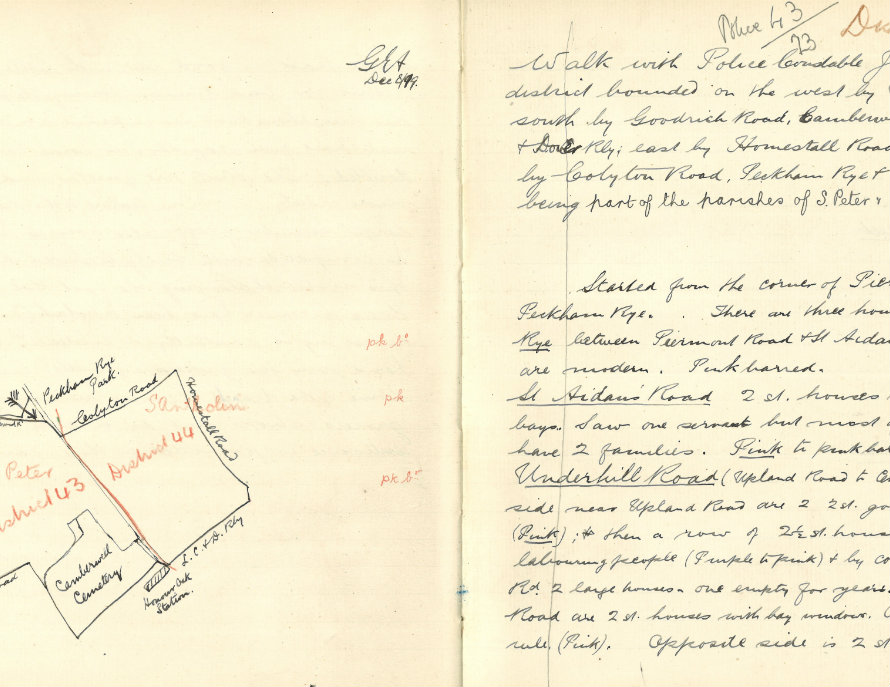 G E A
Dec 8/99.
pk bd
pk
pk bd
Peckham Rye
Park.
Colyton Road
Homestall Road
S. Antholin
District 44
Peter
District 43
Camberwell
Cemetery
L. C. & D. Rly
Honour Oak
Station.
Police 43
73
Dis
Walk with Police Constable J
district bounded on the west by
south by Goodrich Road, Camberw
& Dover Rly; east by Homestall Road
by Colyton Road, Peckham Rye &
being part of the parishes of S. Peter
Started from the corner of Pier
Peckham Rye. There are three hou
Rye between Piermont Road & St Aidan
are modern. Pink barred.
St Aidan's Road 2 st. houses
bays. Saw one servant but most
have 2 families. Pink to pink bar
Underhill Road (Upland Road to Ce
side near Upland Road are 2 2 st. go
(Pink); & then a row of 2½ st. hous
labouring people (Purple to pink) & by co
Rd. 2 large houses - one empty for years.
Road are 2 st. houses with bay windows.
rule. (Pink). Opposite side is 2 st